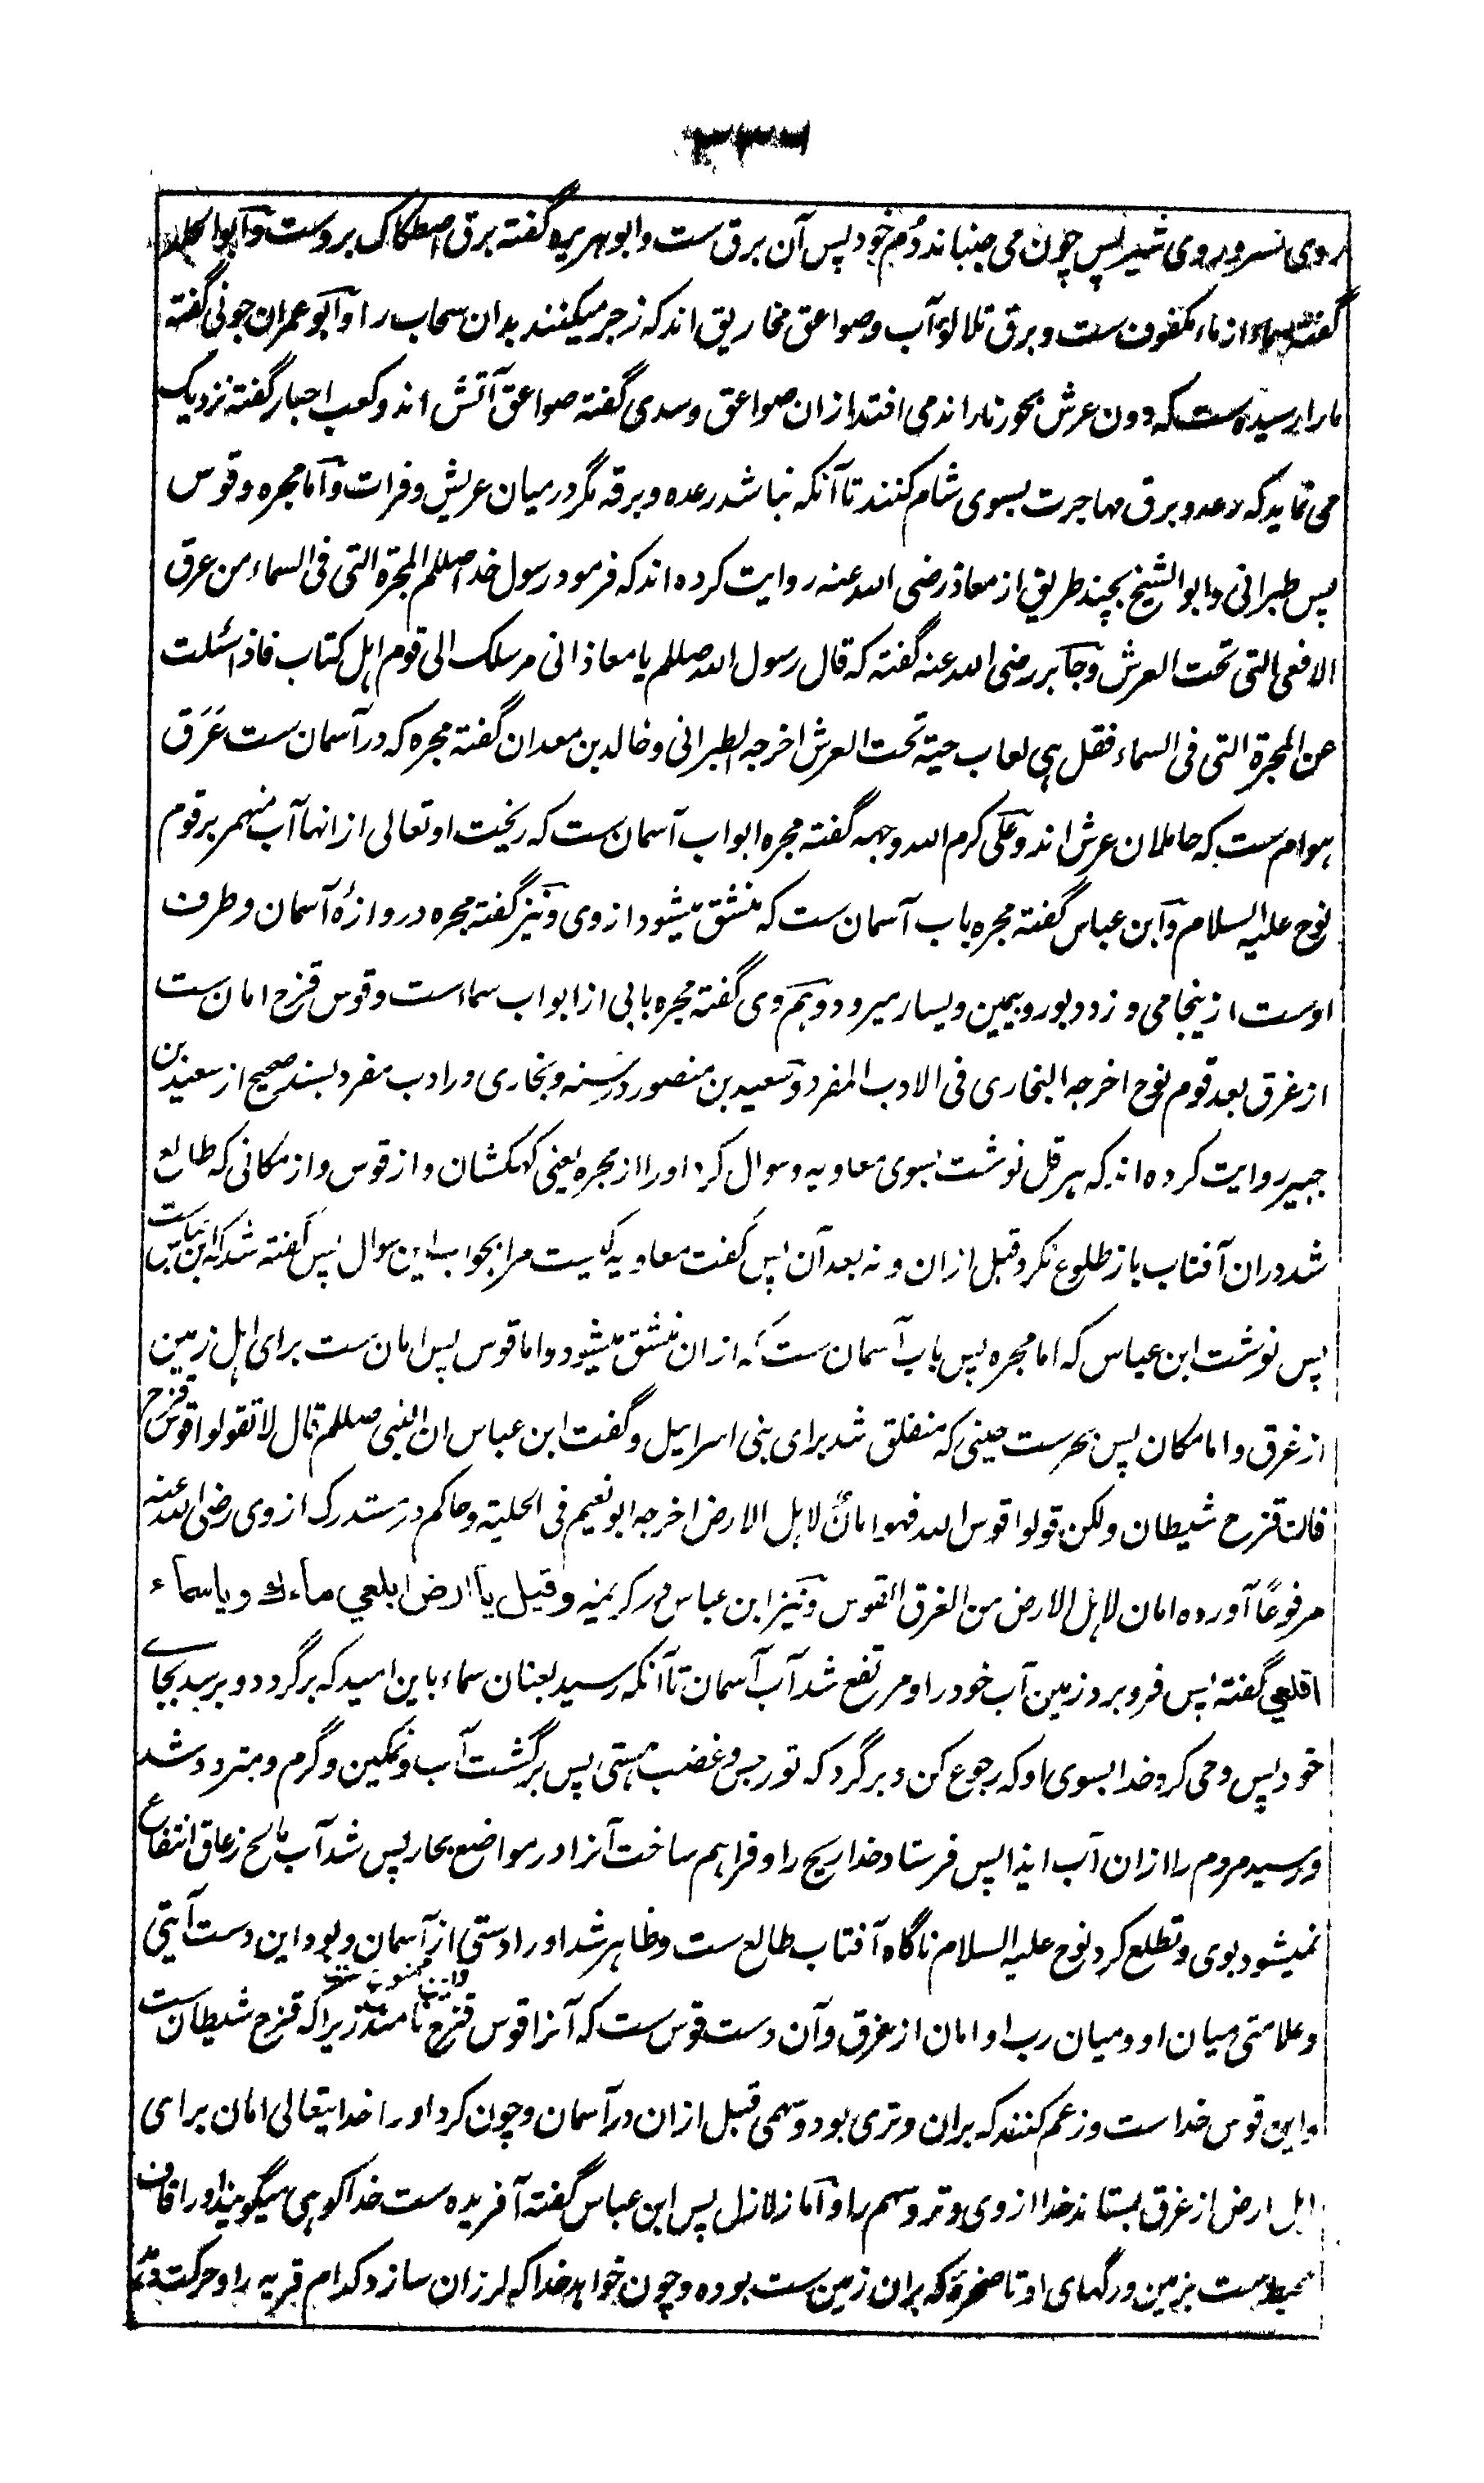 روی نسر و روی شیر پس چون می جنباند دُم خود پس آن برق ست و ابو هریره گفته برق اصطکاک برد ست و ابو الجلد
گفته سماء از ماء مکفوف ست و برق تلالؤ آب و صواعق مخاریق اند که زجر میکنند بدان سحاب را و ابو عمران جونی گفته
ما را رسیده ست که دون عرش بحور نار اند می افتد ازان صواعق و سدی گفته صواعق آتش اند و کعب احبار گفته نزدیک
می نماید که رعد و برق مهاجرت بسوی شام کنند تا آنکه نباشد رعده و برقه مگر درمیان عریش و فرات و اما مجره و قوس
پس طبرانی و ابو الشیخ بچند طریق از معاذ رضی الله عنه روایت کرده اند که فرمود رسول خدا صللم المجرة التی فی السماء من عرق
الافعی التی تحت العرش و جابر رضی الله عنه گفته که قال رسول الله صللم یا معاذ انی مرسلک الی قوم اهل کتاب فاذا سُئلت
عن المجرة التی فی السماء فقل هی لعاب حیة تحت العرش اخرجه الطبرانی و خالد بن معدان گفته مجره که در آسمان ست عَرَق
هوام ست که حاملان عرش اند و علی کرم الله وجهه گفته مجره ابواب آسمان ست که ریخت او تعالی از انها آب منهمر بر قوم
نوح علیه السلام و ابن عباس گفته مجره باب آسمان ست که منشق میشود از وی و نیز گفته مجره دروازهٔ آسمان و طرف
اوست از ینجا می وزد دبور و بیمین و یسار میرود و هم وی گفته مجره بابی از ابواب سما است و قوس قزح امان ست
از غرق بعد قوم نوح اخرجه البخاری فی الادب المفرد و سعید بن منصور در سننه و بخاری در ادب مفرد بسند صحیح از سعید بن
جبیر روایت کرده اند که هرقل نوشت بسوی معاویه و سوال کرد او را از مجره یعنی کهکشان و از قوس و از مکانی که طالع
شد دران آفتاب باز طلوع نکرد قبل ازان و نه بعد آن پس گفت معاویه کیست مرا بجواب این سوال پس گفته شد که ابن عباس ست
پس نوشت ابن عباس که اما مجره پس باب آسمان ست که ازان منشق میشود و اما قوس پس امان ست برای اهل زمین
از غرق و اما مکان پس بحر ست حینی که منفلق شد برای بنی اسراییل و گفت ابن عباس ان النبی صللم قال لا تقولوا قوس قزح
فالن قزح شیطان ولکن قولوا قوس الله فهو امانٌ لاهل الارض اخرجه ابو نعیم فی الحلیة و حاکم در مستدرک از وی رضی الله عنه
مرفوعًا آورده امان لاهل الارض من الغرق القوس و نیز ابن عباس در کریمه وقیل یا ارض ابلعی ماءك ویاسماء
اقلعی گفته پس فرو برد زمین آب خود را و مرتفع شد آب آسمان تا آنکه رسید بعنان سماء باین امید که برگردد و برسد بجای
خود پس وحی کرد خدا بسوی او که رجوع کن و برگرد که تو رجس و غضب هستی پس برگشت آب و نمکین و گرم و متردد شد
و رسید مردم را ازان آب ایذا پس فرستاد خدا ریح را و فراهم ساخت آنرا در مواضع بحار پس شد آب مالح زعاق انتفاع
نمیشود بوی و تطلع کرد نوح علیه السلام ناگاه آفتاب طالع ست و ظاهر شد او را دستی از آسمان و بود این دست آیتی
و علامتی میان او و میان رب او امان از غرق و آن دست قوس ست که آنرا قوس قزح نامند زیرا که قزح شیطان ست
و این قوس خداست و زعم کنند که بران وتری بود و سهمی قبل ازان در آسمان و چون کرد او را خدایتعالی امان برای
اهل ارض از غرق بستاند خدا از وی وتر و سهم را و اما زلازل پس ابن عباس گفته آفریده ست خدا کوهی میگویند او را قاف
محیط ست بزمین و رگهای او تا صخرهٔ که بران زمین ست بوده و چون خواهد خدا که لرزان سازد کدام قریه را و حرکت دهد